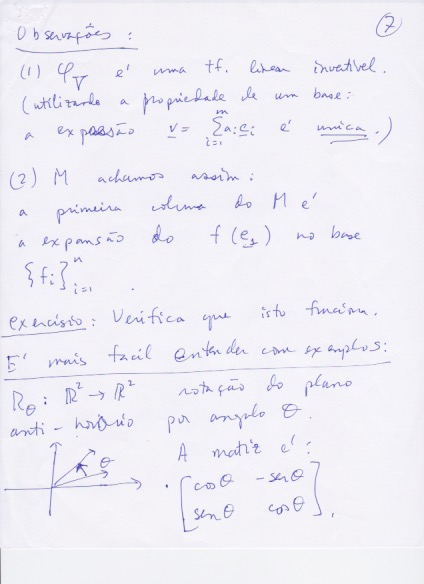 7
Observações:
(1) φ_V é uma tf. linear invertível.
(utilizando a propriedade de um base:
a expansão v = Σ_{i=1}^{m} a_i e_i é unica.)
(2) M achamos assim:
a primeira coluna do M é
a expansão do f(e_1) no base
{f_i}_{i=1}^{n}.
exercísio: Verifica que isto funciona.
E' mais facil entender com exemplos:
R_θ: ℝ² → ℝ² rotação do plano
anti-horário por angulo θ.
θ
A matiz é:
[cosθ -senθ
senθ cosθ].